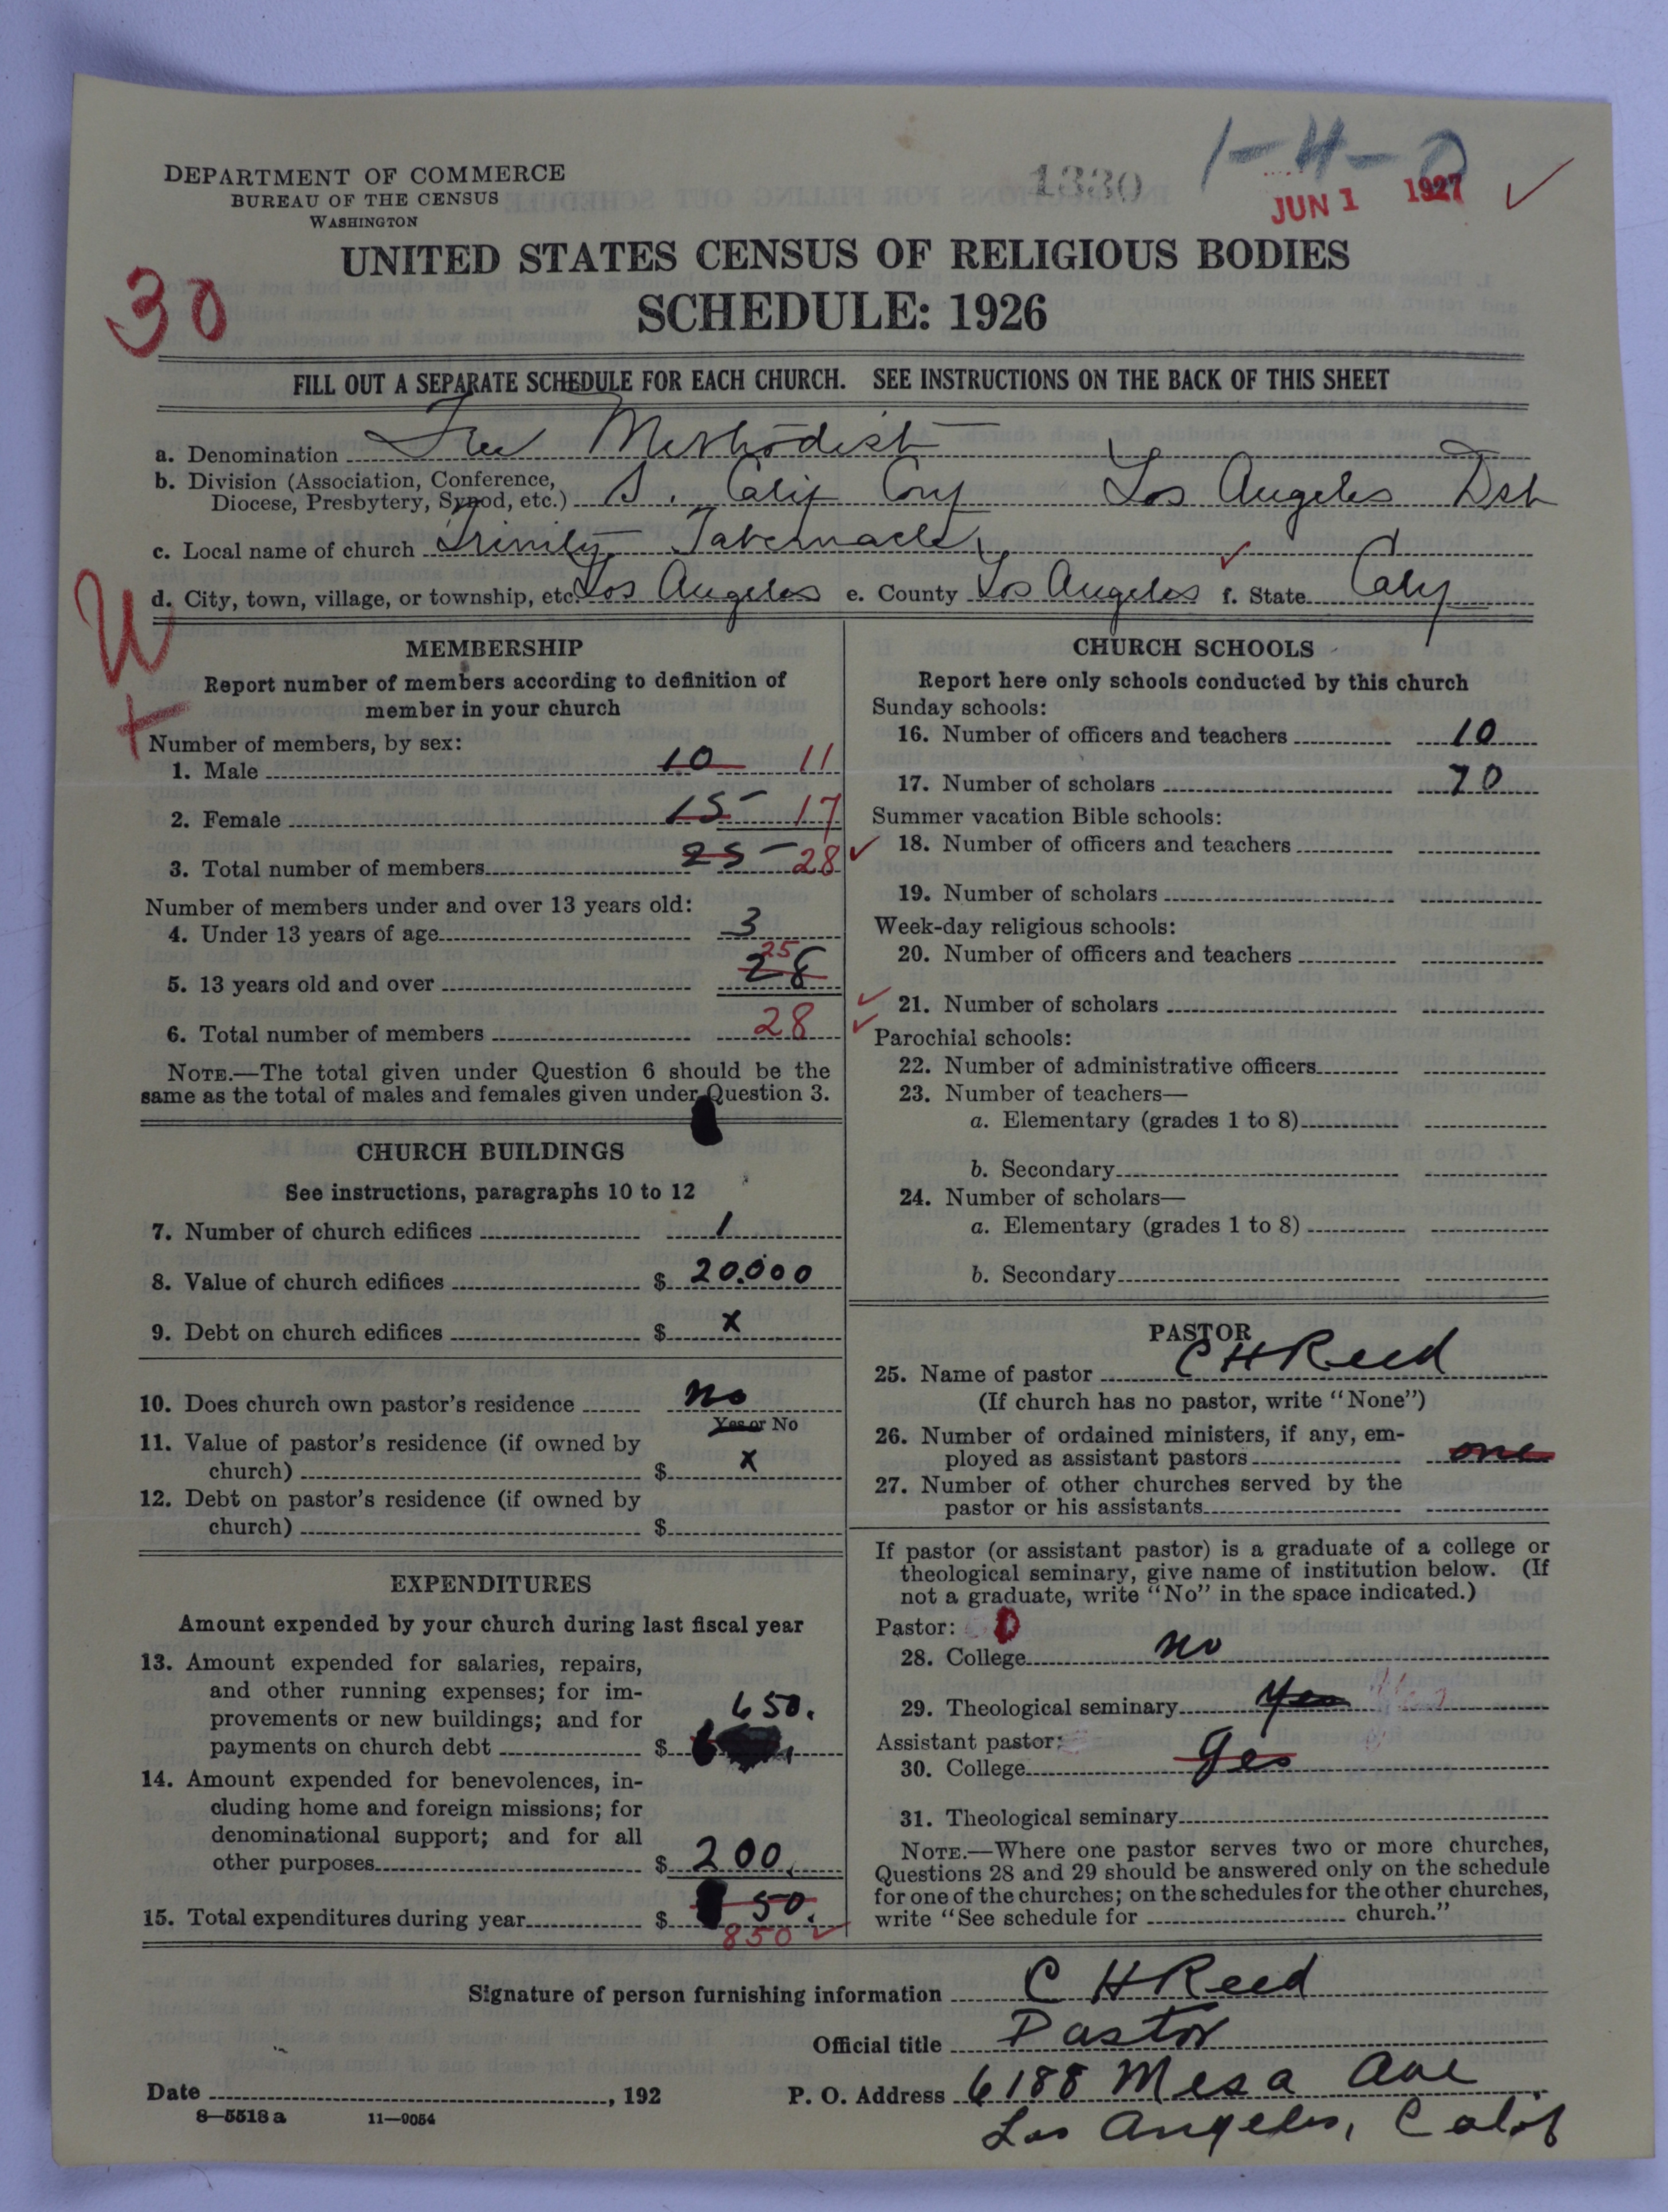 1-4-0
1330
JUN 1 1927
DEPARTMENT OF COMMERCE
BUREAU OF THE CENSUS
WASHINGTON
UNITED STATES CENSUS OF RELIGIOUS BODIES
SCHEDULE: 1926
30
FILL OUT A SEPARATE SCHEDULE FOR EACH CHURCH. SEE INSTRUCTIONS ON THE BACK OF THIS SHEET
a. Denomination Free Methodist
b. Division (Association, Conference,
Diocese, Presbytery, Synod, etc.) S. Calif Conf Los Angeles Dst
c. Local name of church Trinity Tabernacle
d. City, town, village, or township, etc. Los Angeles e. County Los Angeles f. State Calif
MEMBERSHIP
Report number of members according to definition of
member in your church
Number of members, by sex:
1. Male 10 11
2. Female 15 17
3. Total number of members 25 28
Number of members under and over 13 years old:
4. Under 13 years of age 3
25
5. 13 years old and over 28
6. Total number of members 28
NOTE.—The total given under Question 6 should be the
same as the total of males and females given under Question 3.
CHURCH BUILDINGS
See instructions, paragraphs 10 to 12
7. Number of church edifices 1
8. Value of church edifices $ 20.000
9. Debt on church edifices $ x
10. Does church own pastor's residence no
Yes or No
11. Value of pastor's residence (if owned by
church) $ x
12. Debt on pastor's residence (if owned by
church) $
EXPENDITURES
Amount expended by your church during last fiscal year
13. Amount expended for salaries, repairs,
and other running expenses; for im-
provements or new buildings; and for 650.
payments on church debt $
14. Amount expended for benevolences, in-
cluding home and foreign missions; for
denominational support; and for all
other purposes $ 200.
15. Total expenditures during year $ 50.
850
CHURCH SCHOOLS
Report here only schools conducted by this church
Sunday schools:
16. Number of officers and teachers 10
17. Number of scholars 70
Summer vacation Bible schools:
18. Number of officers and teachers
19. Number of scholars
Week-day religious schools:
20. Number of officers and teachers
21. Number of scholars
Parochial schools:
22. Number of administrative officers
23. Number of teachers—
a. Elementary (grades 1 to 8)
b. Secondary
24. Number of scholars—
a. Elementary (grades 1 to 8)
b. Secondary
PASTOR
25. Name of pastor C H Reed
(If church has no pastor, write "None")
26. Number of ordained ministers, if any, em-
ployed as assistant pastors one
27. Number of other churches served by the
pastor or his assistants
If pastor (or assistant pastor) is a graduate of a college or
theological seminary, give name of institution below. (If
not a graduate, write "No" in the space indicated.)
Pastor: 0
28. College no
29. Theological seminary yes
Assistant pastor:
30. College yes
31. Theological seminary
NOTE.—Where one pastor serves two or more churches,
Questions 28 and 29 should be answered only on the schedule
for one of the churches; on the schedules for the other churches,
write "See schedule for church."
Signature of person furnishing information C H Reed
Official title Pastor
Date , 192 P. O. Address 6188 Mesa Ave
8—5518 a 11—9054
Los Angeles, Calif